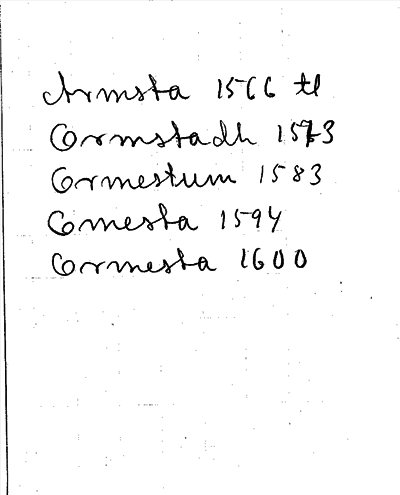 Armsta 1566 tl
Ormstadh 1573
Ormestum 1583
Omesta 1594
Ormesta 1600